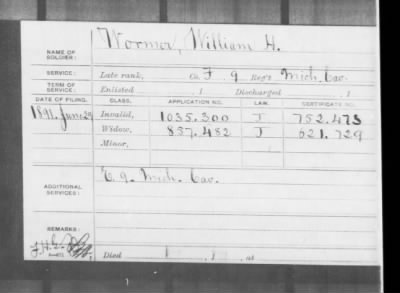 NAME OF SOLDIER: Wormer, William H.
SERVICE: Late rank, Co. F. 9 Reg't Mich. Cav.
TERM OF SERVICE: Enlisted , 1 Discharged , 1
DATE OF FILING. CLASS. APPLICATION NO. LAW. CERTIFICATE NO.
1891. June 29 Invalid, 1035.300 J 752.473
Widow, 857.482 J 621.729
Minor,
ADDITIONAL SERVICES: E. 9. Mich. Cav.
REMARKS:
Died , at